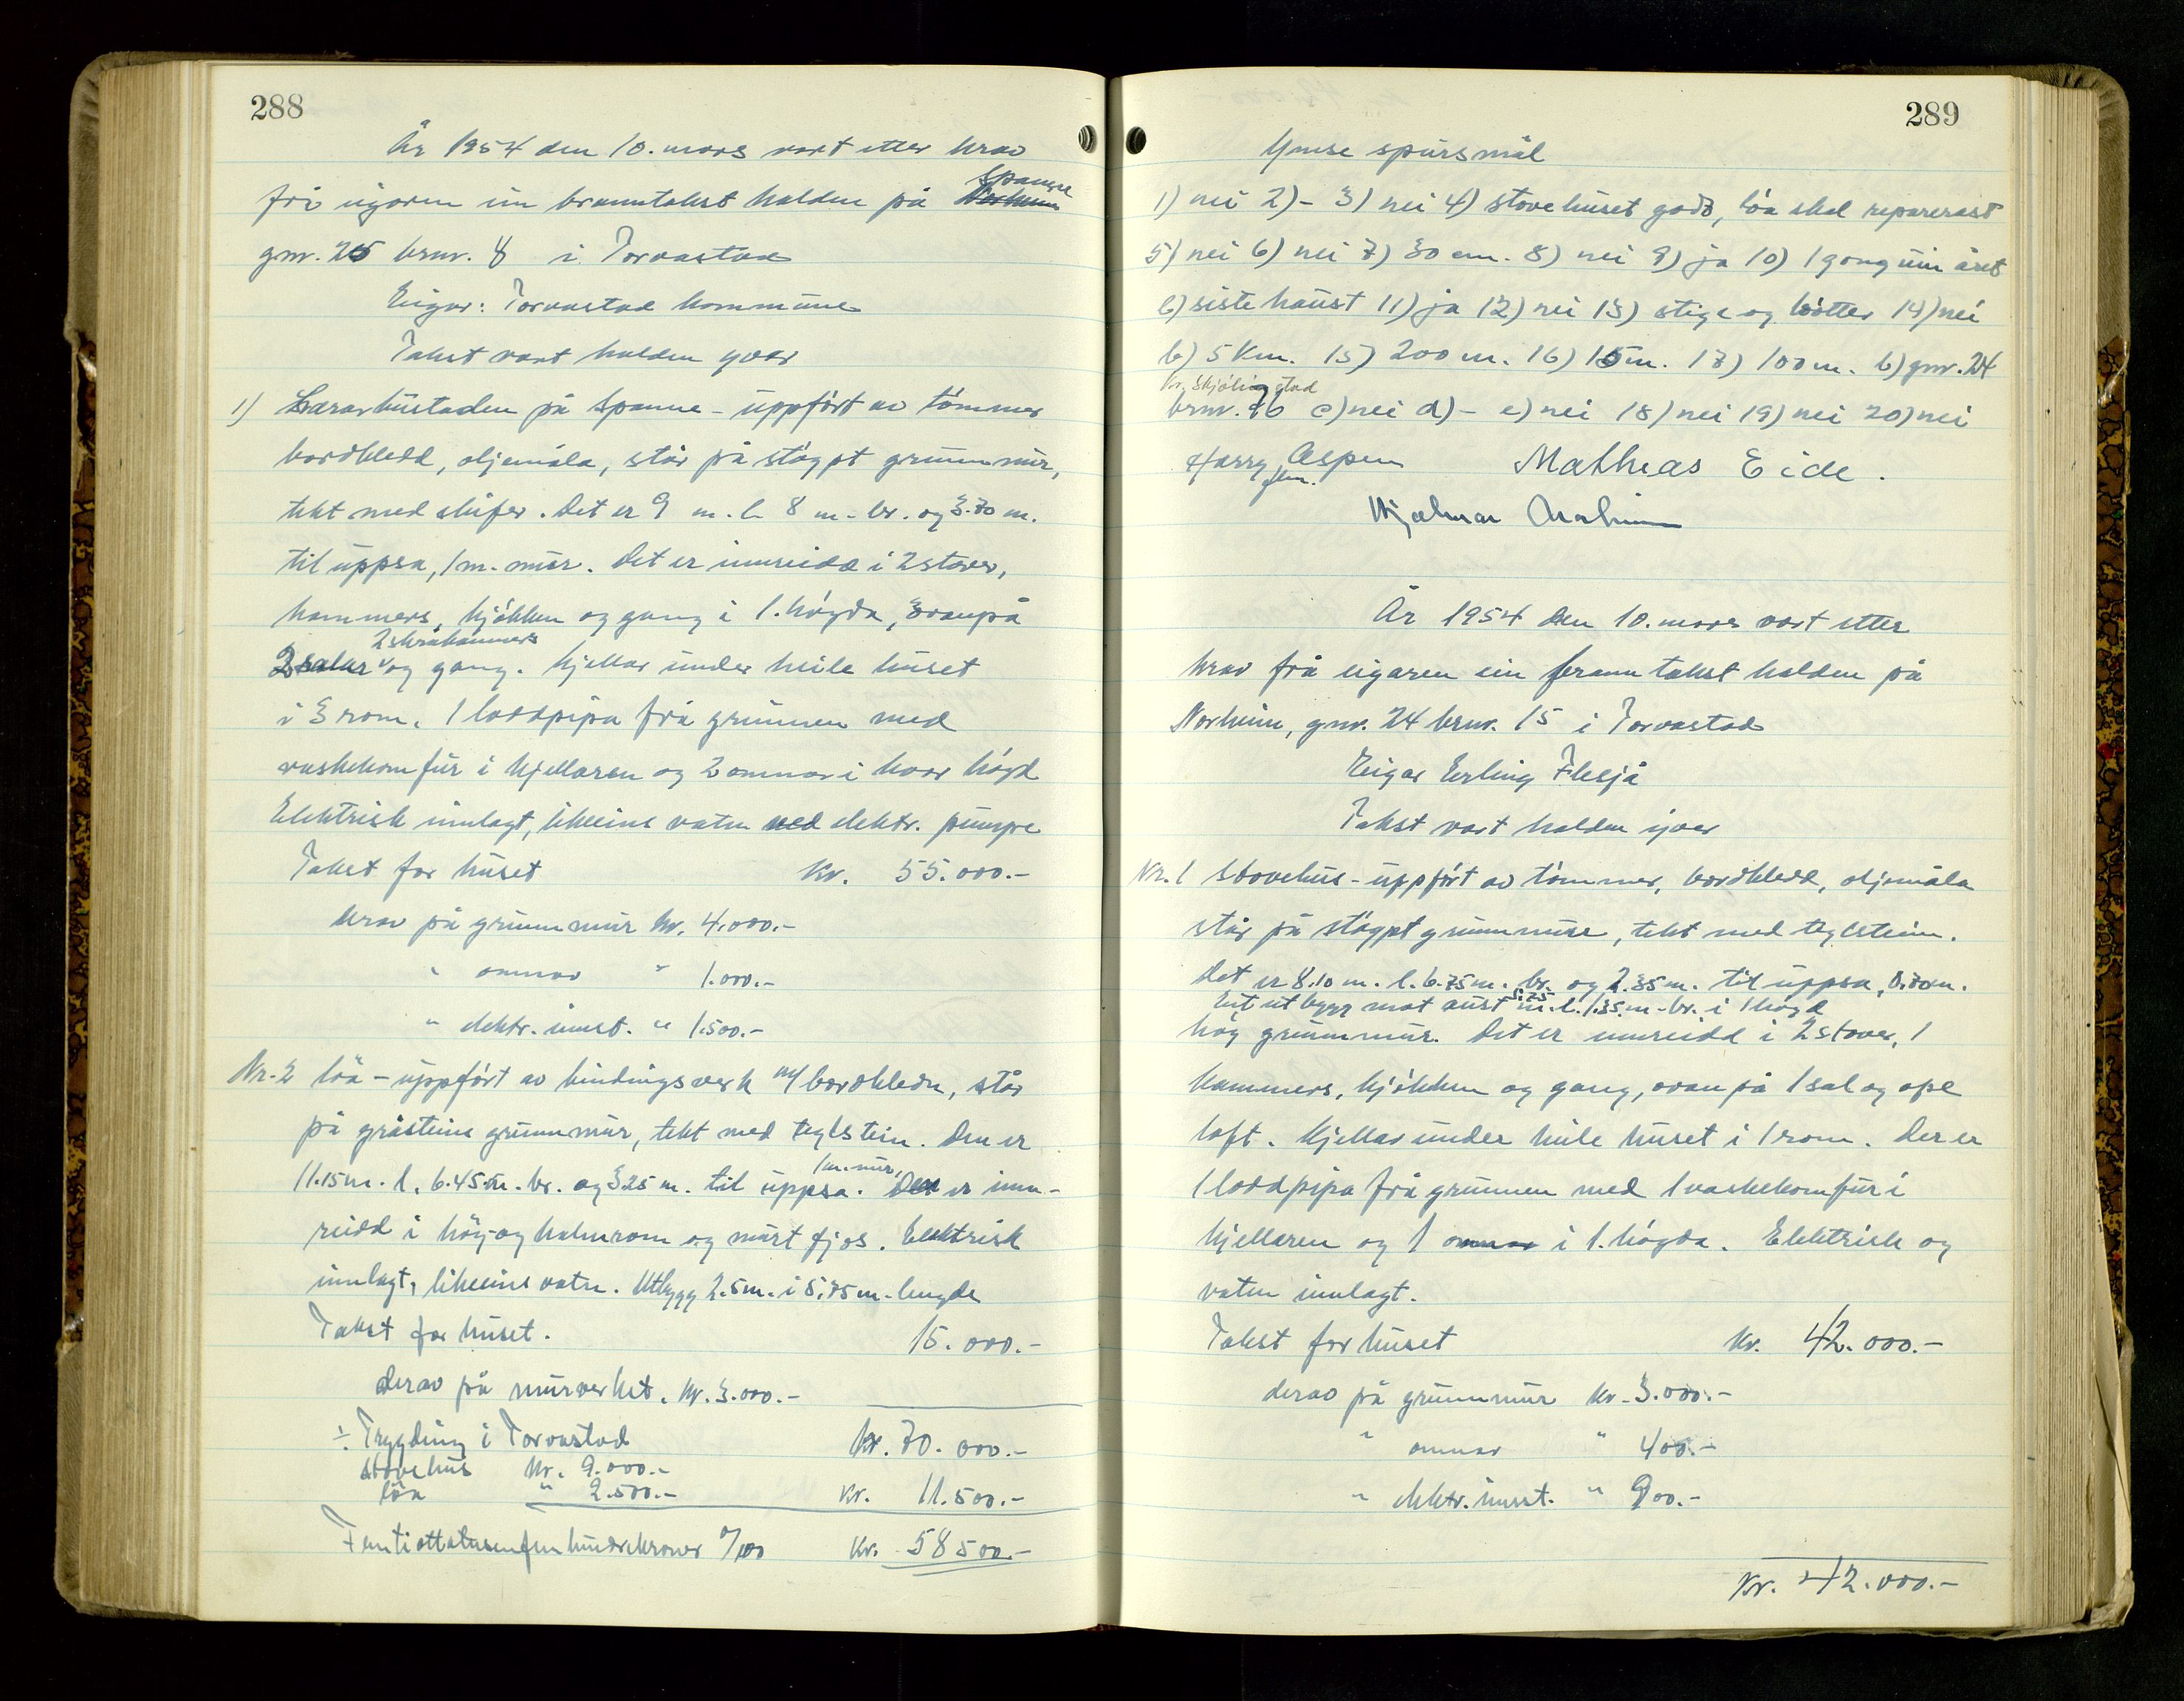 288
År 1954 den 10. mars vart etter krav
frå eigaren ein branntakst halden på Spanne
gnr. 25 brnr. 8 i Torvastad
Eigar: Torvastad kommune
Takst vart halden yver
1) Lærarbustaden på Spanne - uppført av tømmer
bordkledd, oljemåla, står på støypt grunnmur,
tekt med skifer. Det er 9 m. l. 8 m. br. og 3.70 m.
til uppsa, 1 m. mur. Det er innreidd i 2 stover,
kammers, kjøkken og gang i 1. høgda, ovanpå
2 skråkammers
2 salar og gang. Kjellar under heile huset
i 3 rom. 1 loddpipa frå grunnen med
vaskekomfur i kjellaren og 2 omnar i kvar høgd
Elektrisk innlagt, likeeins vatn med elektr. pumpe
Takst for huset Kr. 55.000.-
derav på grunnmur kr. 4.000.-
" omnar " 1.000.-
" elektr. innst. " 1.500.-
Nr. 2 löa - uppført av bindingsverk m/ bordkledn, står
på gråsteins grunnmur, tekt med teglstein. Den er
1 m. mur,
11.15 m. l. 6.45 m. br. og 3.25 m. til uppsa. Den er inn-
reidd i høy- og halmrom og murt fjøs. Elektrisk
innlagt, likeeins vatn. Utbygg 2.5 m. i 5,75 m. lengde
Takst for huset. 15.000.-
derav på murverket. kr. 3.000.-
÷ Trygding i Torvastad kr. 70.000.-
stovehus kr. 9.000.-
löa " 2.500.- kr. 11.500.-
Femtiåttetusenfemhundrekroner 0/00 kr. 58500.-
289
Ymse spursmål
1) nei 2) - 3) nei 4) stovehuset godt, löa skal reparerast
5) nei 6) nei 7) 30 cm. 8) nei 9) ja 10) 1 gong um året
b) siste haust 11) ja 12) nei 13) stige og bøtter 14) nei
b) 5 km. 15) 200 m. 16) 15 m. 17) 100 m. b) gnr. 24
Kr. Skjølingstad
brnr. 96 c) nei d) - e) nei 18) nei 19) nei 20) nei
Harry Aspen Mathias Eide.
fm.
Hjalmar
År 1954 den 10. mars vart etter
krav frå eigaren ein branntakst halden på
Norheim, gnr. 24 brnr. 15 i Torvastad
Eigar Erling Flesjå
Takst vart halden yver
Nr. 1 Stovehus - uppført av tømmer, bordkledd, oljemåla
står på støypt grunnmur, tekt med teglstein.
Det er 8.10 m. l. 6.75 m. br. og 2.35 m. til uppsa, 0.70 m.
Eit utbygg mot aust 5.25 m. l. 1.35 m. br. i 1 høgd
høg grunnmur. Det er innreidd i 2 stover, 1
kammers, kjøkken og gang, ovanpå 1 sal og ope
loft. Kjellar under heile huset i 1 rom. Der er
1 loddpipa frå grunnen med 1 vaskekomfur i
kjellaren og 1 omnar i 1. høgda. Elektrisk og
vatn innlagt.
Takst for huset kr. 42.000.-
derav på grunnmur kr. 3.000.-
" omnar " 400.-
" elektr. innst. " 900.-
Kr. 42.000.-